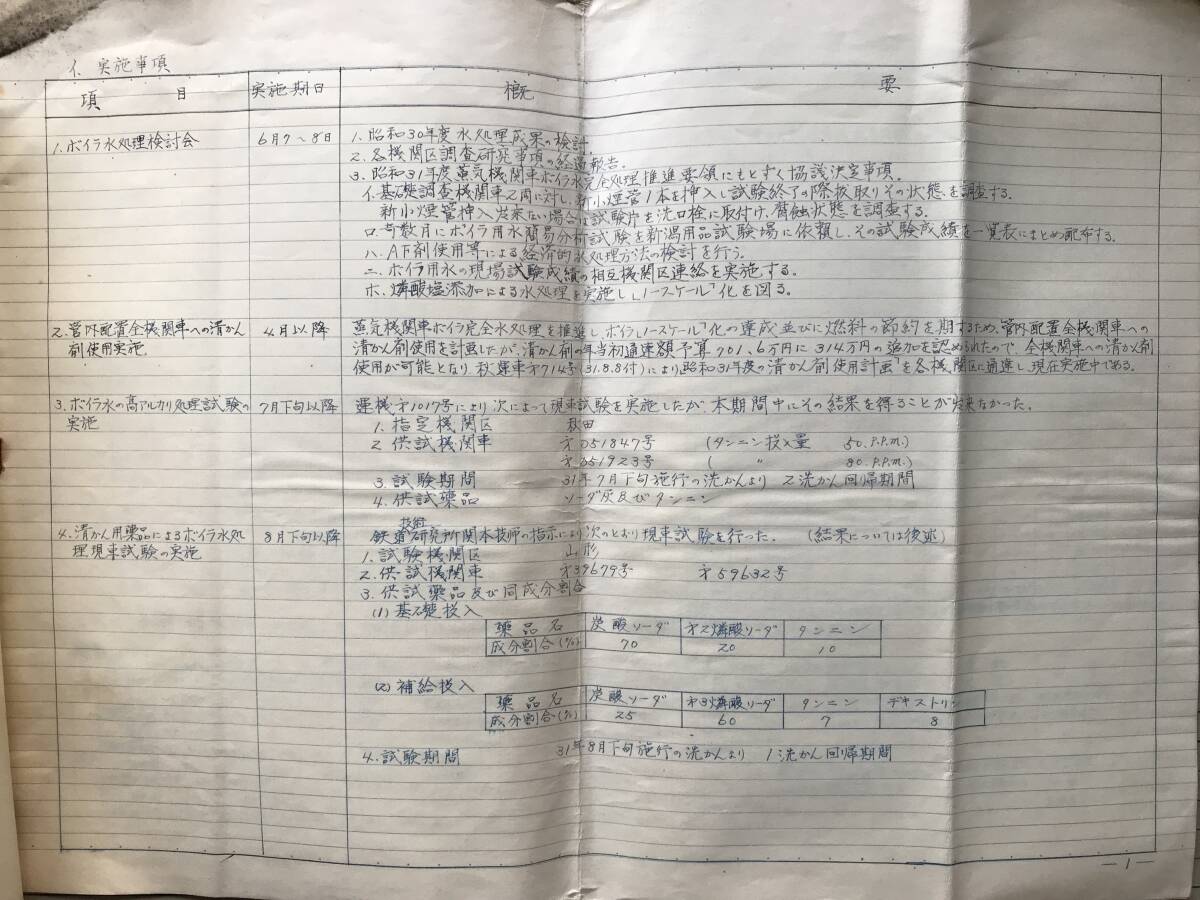 イ. 実施事項
項 目 実施期日 概 要
1. ボイラ水処理検討会 6月7~8日 1. 昭和30年度水処理成果の検討.
2. 各機関区調査研究事項の経過報告.
3. 昭和31年度蒸気機関車ボイラ水完全処理推進要領にもとずく協議決定事項.
イ. 基礎調査機関車2両に対し、新小煙管1本を押入し試験終了の際抜取りその状態を調査する.
新小煙管押入出来ない場合は試験片を洗口栓に取付け、腐蝕状態を調査する.
ロ. 奇数月にボイラ用水簡易分析試験を新潟用品試験場に依頼し、その試験成績を一覧表にまとめ配布する.
ハ. A下剤使用等による経済的水処理方法の検討を行う.
ニ. ボイラ用水の現場試験成績の相互機関区連絡を実施する.
ホ. 燐酸塩添加による水処理を実施し「ノースケール」化を図る.
2. 管内配置全機関車への清かん 4月以降 蒸気機関車ボイラ完全水処理を推進し、ボイラ「ノースケール」化の達成並びに燃料の節約を期するため、管内配置全機関車への
剤使用実施. 清かん剤使用を計画したが、清かん剤の年当初通達額予算701.6万円に314万円の追加を認められたので、全機関車への清かん剤
使用が可能となり 秋運車才714号(31.8.8付)により昭和31年度の清かん剤使用計画を各機関区に通達し、現在実施中である.
3. ボイラ水の高アルカリ処理試験の 7月下旬以降 運機才1017号により次によって現車試験を実施したが、本期間中にその結果を得ることが出来なかった.
実施 1. 指定機関区 秋田
2 供試機関車 才D51847号 (タンニン投入量 50.P.P.m.)
才D51923号 ( 〃 80.P.P.m.)
3. 試験期間 31年7月下旬施行の洗かんより 2洗かん回帰期間
4. 供試薬品 ソーダ灰及びタンニン
4. 清かん用薬品によるボイラ水処 8月下旬以降 鉄道技術研究所関本技師の指示により次のとおり現車試験を行った. (結果については後述)
理現車試験の実施 1. 試験機関区 山形
2. 供試機関車 才39679号 才59632号
3. 供試薬品及び同成分割合
(1) 基礎投入
薬品名 炭酸ソーダ 才2燐酸ソーダ タンニン
成分割合(%) 70 20 10
(2) 補給投入
薬品名 炭酸ソーダ 才3燐酸ソーダ タンニン デキストリン
成分割合(%) 25 60 7 8
4. 試験期間 31年8月下旬施行の洗かんより 1洗かん回帰期間
―1―